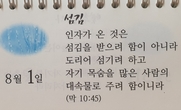 섬김
인자가 온 것은
섬김을 받으려 함이 아니라
도리어 섬기려 하고
자기 목숨을 많은 사람의
대속물로 주려 함이니라
(막 10:45)
8월 1일